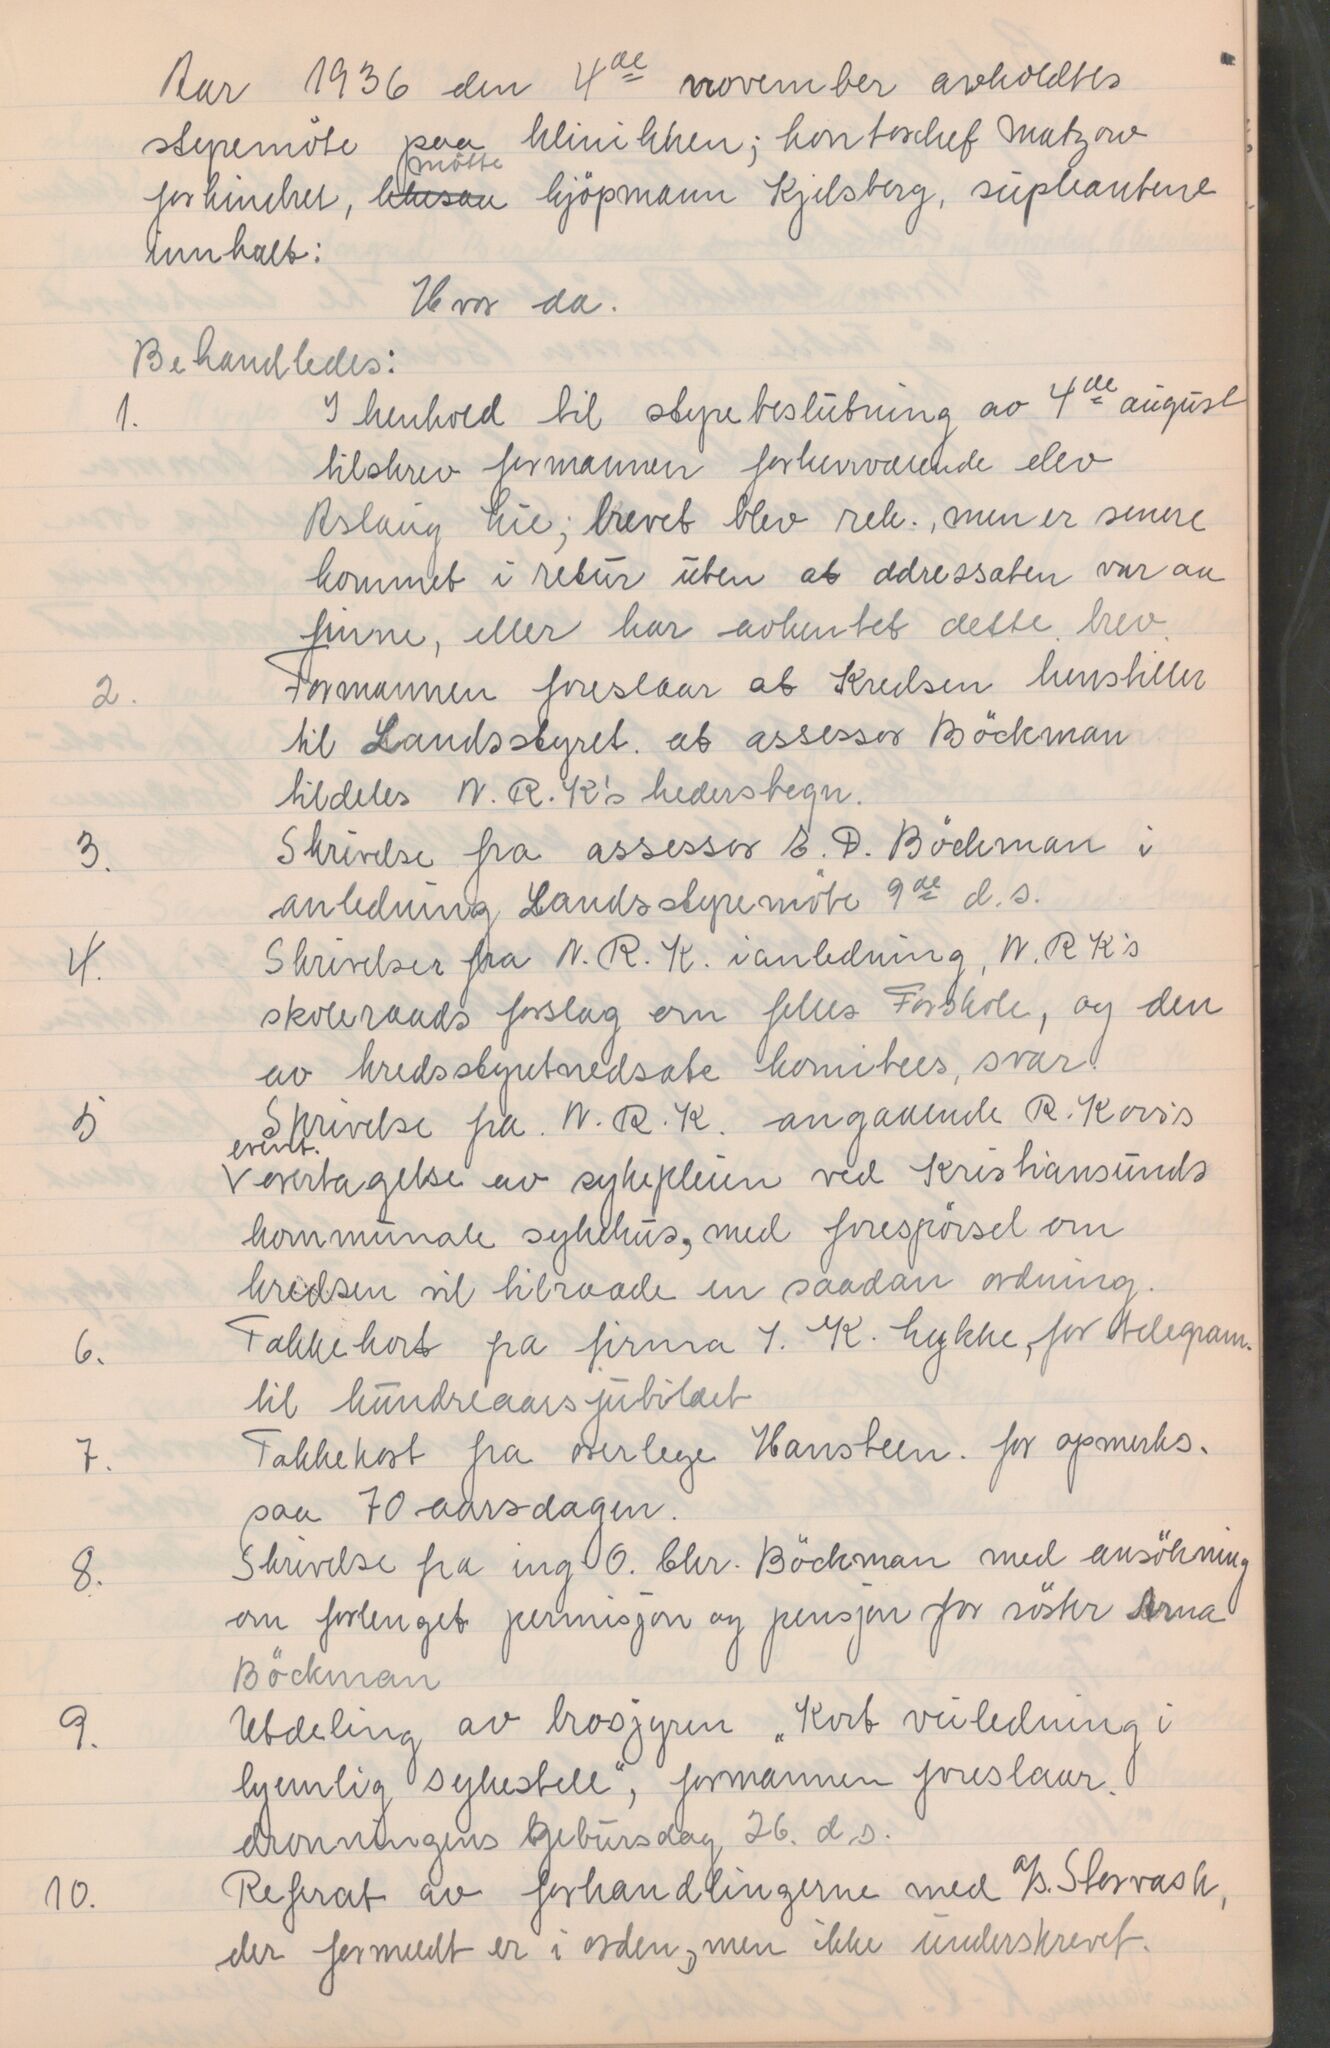 Aar 1936 den 4de november avholdtes
styremöte paa klinikken; kontorchef Matzow
forhindret, mötte kjöpmann Kjelsberg, supleantene
innkalt:
Hvor da.
Behandledes:
1. I henhold til styrebeslutning av 4de august
tilskrev formannen forhenværende elev
Aslaug Lie; brevet blev rek., men er senere
kommet i retur uten at adressaten var aa
finne, eller har avhentet dette brev.
2. Formannen foreslaar at Kredsen henstiller
til Landsstyret. at assessor Böckman
tildeles N. R. K's hederstegn.
3. Skrivelse fra assessor E. D. Böckman i
anledning Landsstyremöte 9de d.s.
4. Skrivelser fra N. R. K. i anledning, N. R K's
skoleraads forslag om felles Forskole, og den
av kredsstyret nedsate komitees, svar.
5 Skrivelse fra N. R. K. angaaende R. Kors's
event.
overtagelse av sykepleien ved Kristiansunds
kommunale sykehus, med forespörsel om
kredsen vil tilraade en saadan ordning.
6. Takkekort fra firma I. K. Lykke, for telegram.
til hundreaarsjubileet
7. Takkekort fra overlege Hansteen. for opmerks.
paa 70 aarsdagen.
8. Skrivelse fra ing O. Chr. Böckman med ansökning
om forlenget permisjon og pensjon for söster Arna
Böckman
9. Utdeling av brosjyren „Kort veiledning i
hjemlig sykestell“, formannen foreslaar.
dronningens gebursdag 26. d.s.
10. Referat av forhandlingerne med A/S. Storvask,
der formelt er i orden, men ikke underskrevet.